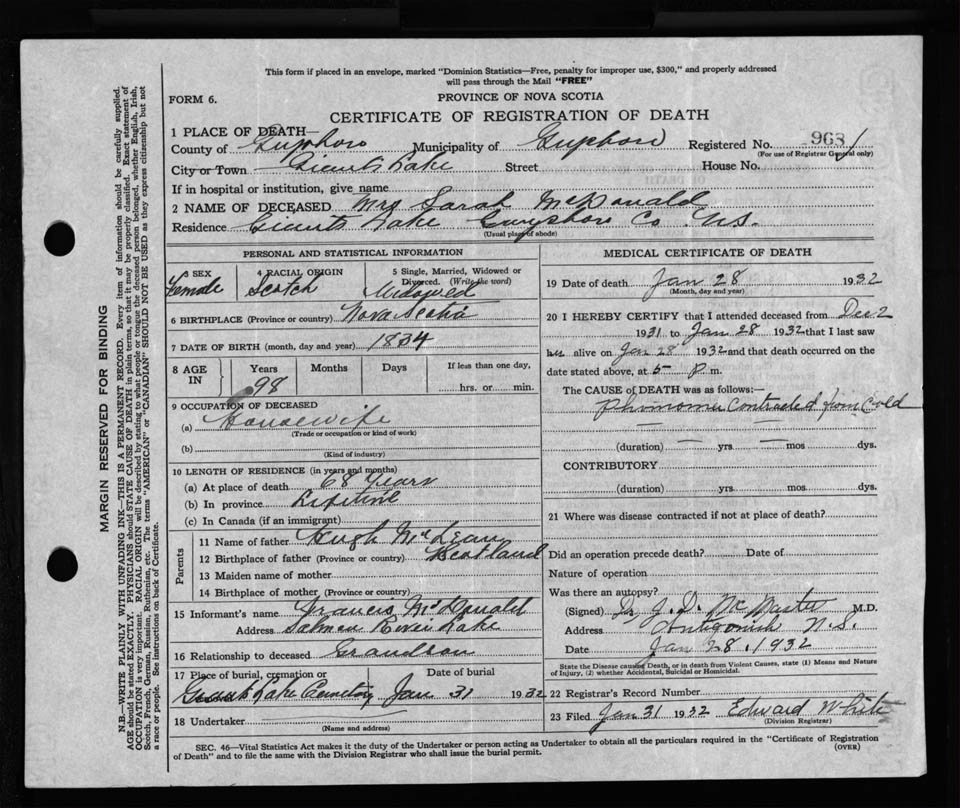 This form if placed in an envelope, marked "Dominion Statistics—Free, penalty for improper use, $300," and properly addressed
will pass through the Mail "FREE"
FORM 6.
PROVINCE OF NOVA SCOTIA
CERTIFICATE OF REGISTRATION OF DEATH
1 PLACE OF DEATH—
County of Guysboro Municipality of Guysboro Registered No. 963
(For use of Registrar General only)
City or Town Giants Lake Street House No.
If in hospital or institution, give name
2 NAME OF DECEASED Mrs Sarah McDonald
Residence Giants Lake Guysboro Co N.S.
(Usual place of abode)
PERSONAL AND STATISTICAL INFORMATION
3 SEX Female
4 RACIAL ORIGIN Scotch
5 Single, Married, Widowed or
Divorced. (Write the word)
Widowed
6 BIRTHPLACE (Province or country) Nova Scotia
7 DATE OF BIRTH (month, day and year) 1834
8 AGE IN Years Months Days If less than one day,
98 hrs. or min.
9 OCCUPATION OF DECEASED
(a) Housewife
(Trade or occupation or kind of work)
(b)
(Kind of industry)
10 LENGTH OF RESIDENCE (in years and months)
(a) At place of death 68 Years
(b) In province Lifetime
(c) In Canada (if an immigrant)
Parents
11 Name of father Hugh McLean
12 Birthplace of father (Province or country) Scotland
13 Maiden name of mother
14 Birthplace of mother (Province or country)
15 Informant's name Francis McDonald
Address Salmon River Lake
16 Relationship to deceased Grandson
17 Place of burial, cremation or Date of burial
Giants Lake Cemetery Jan 31 1932
18 Undertaker
(Name and address)
MEDICAL CERTIFICATE OF DEATH
19 Date of death Jan 28 1932
(Month, day and year)
20 I HEREBY CERTIFY that I attended deceased from Dec 2
1931 to Jan 28 1932 that I last saw
her alive on Jan 28 1932 and that death occurred on the
date stated above, at 5 P m.
The CAUSE of DEATH was as follows:—
Phnomonia contracted from Cold
(duration) yrs mos. dys.
CONTRIBUTORY
(duration) yrs. mos. dys.
21 Where was disease contracted if not at place of death?
Did an operation precede death? Date of
Nature of operation
Was there an autopsy?
(Signed) Dr J. D. McMaster M.D.
Address Antigonish N.S.
Date Jan 28. 1932
State the Disease causing Death, or in death from Violent Causes, state (1) Means and Nature
of Injury, (2) whether Accidental, Suicidal or Homicidal.
22 Registrar's Record Number
23 Filed Jan 31 1932 Edward White
(Division Registrar)
SEC. 46—Vital Statistics Act makes it the duty of the Undertaker or person acting as Undertaker to obtain all the particulars required in the "Certificate of Registration
of Death" and to file the same with the Division Registrar who shall issue the burial permit.
(OVER)
MARGIN RESERVED FOR BINDING
N.B.—WRITE PLAINLY WITH UNFADING INK—THIS IS A PERMANENT RECORD. Every item of information should be carefully supplied.
AGE should be stated EXACTLY. PHYSICIANS should STATE CAUSE OF DEATH in plain terms, so that it may be properly classified. Exact statement of
OCCUPATION is very important. RACIAL ORIGIN will be described by stating to what people or tongue the deceased person belonged, whether English, Irish,
Scotch, French, German, Russian, Ruthenian, etc. The terms "AMERICAN" or "CANADIAN" SHOULD NOT BE USED as they express citizenship but not
a race or people. See instructions on back of Certificate.